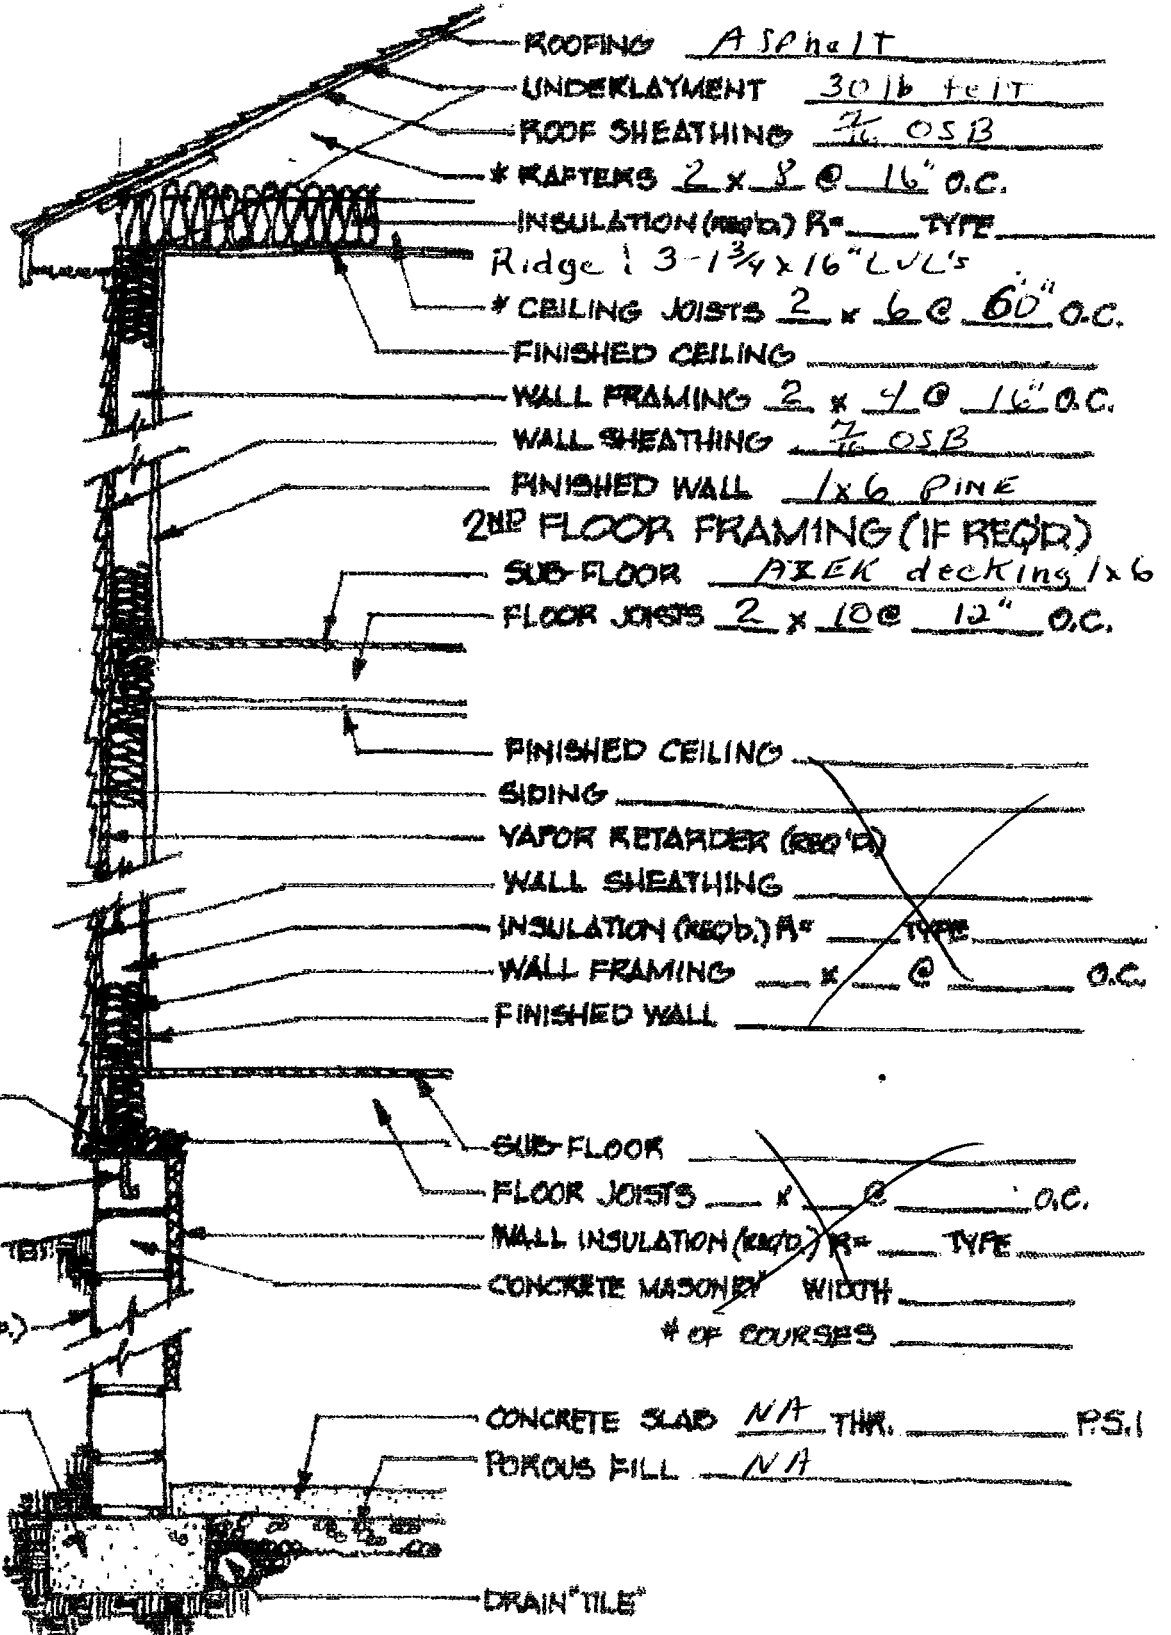 ROOFING Asphalt
UNDERLAYMENT 30 lb felt
ROOF SHEATHING 7/16 OSB
* RAFTERS 2 x 8 @ 16" O.C.
INSULATION (REQ'D.) R= TYPE
Ridge: 3-1 3/4 x 16" LVL's
* CEILING JOISTS 2 x 6 @ 60" O.C.
FINISHED CEILING
WALL FRAMING 2 x 4 @ 16" O.C.
WALL SHEATHING 7/16 OSB
FINISHED WALL 1x6 PINE
2ND FLOOR FRAMING (IF REQ'D)
SUB-FLOOR AZEK decking 1x6
FLOOR JOISTS 2 x 10 @ 12" O.C.
FINISHED CEILING
SIDING
VAPOR RETARDER (REQ'D)
WALL SHEATHING
INSULATION (REQ'D.) R= TYPE
WALL FRAMING x @ O.C.
FINISHED WALL
SUB-FLOOR
FLOOR JOISTS x @ O.C.
WALL INSULATION (REQ'D.) R= TYPE
CONCRETE MASONRY WIDTH
# OF COURSES
CONCRETE SLAB NA THK. P.S.I
POROUS FILL NA
DRAIN "TILE"